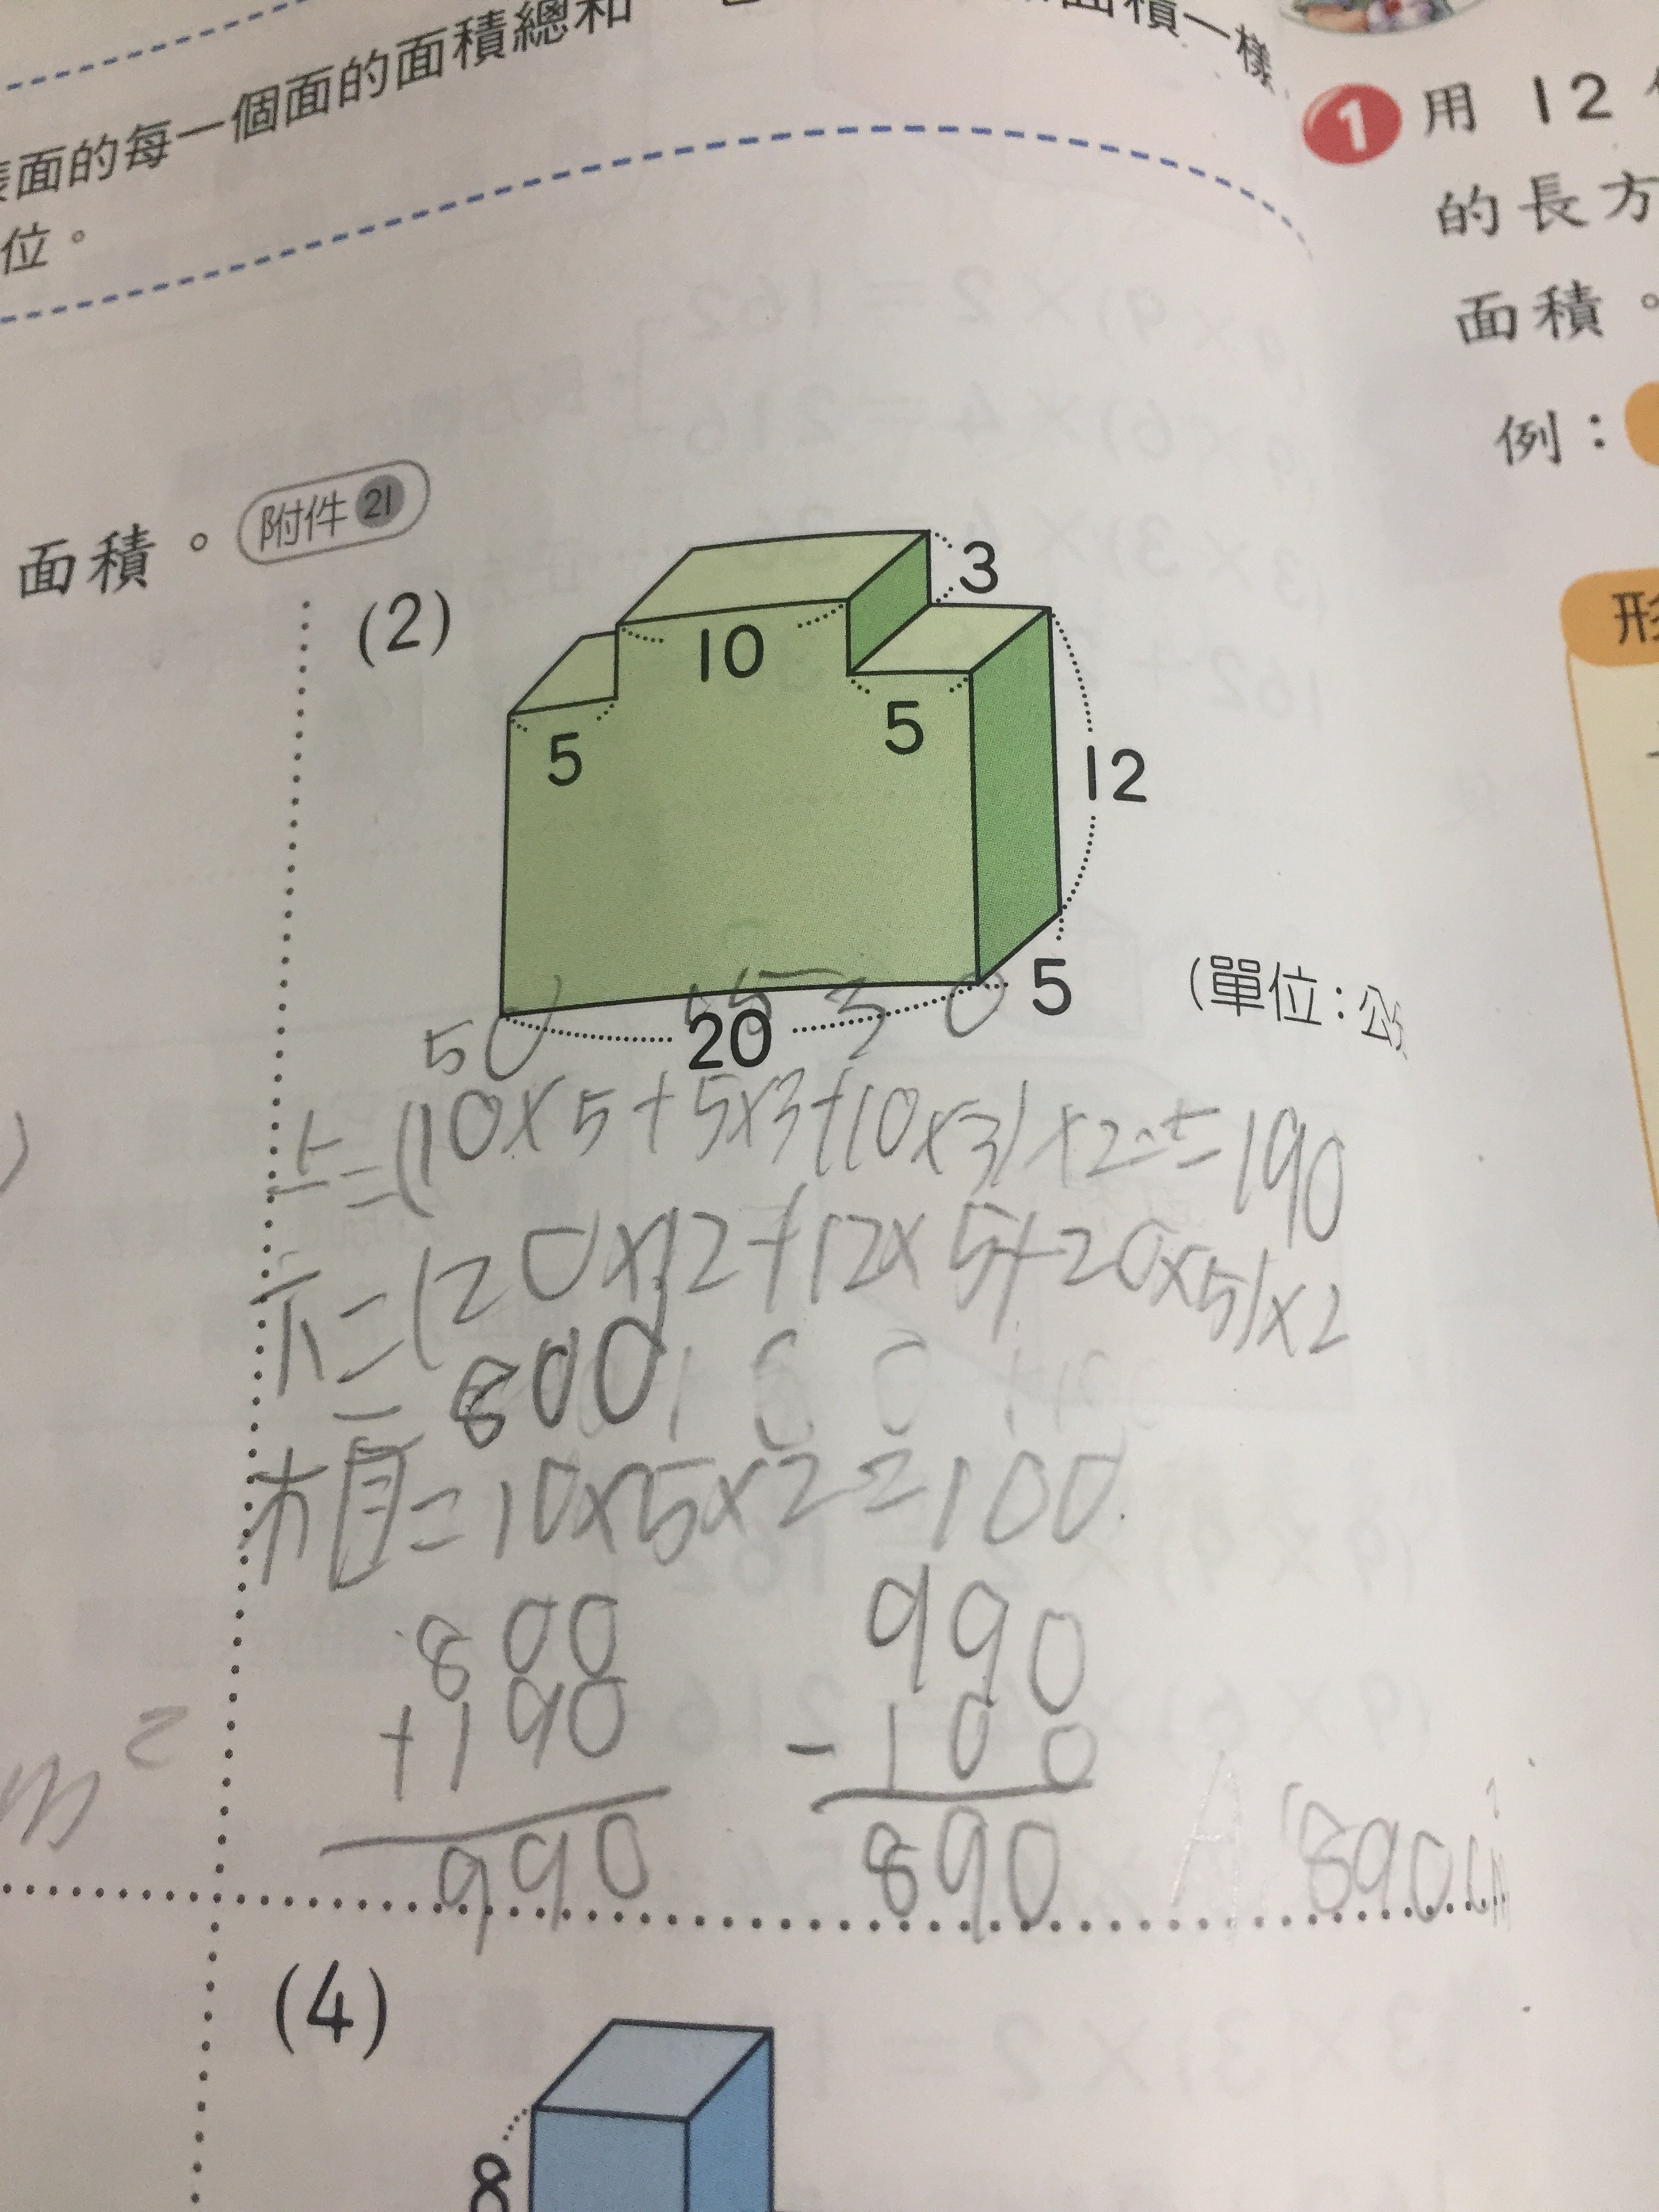 面的每一個面的面積總和
面積一樣
位。
1 用 12
的長方
面積。
例：
形
面積。 附件 21
(2)
3
10
5
5
12
5
20
(單位：公
50 15 30
上=(10×5+5×3+10×3)×2=190
下=(20×12+12×5+20×5)×2
=800
相=10×5×2=100
800
+190
990
990
-100
890
A 890cm²
m²
(4)
8